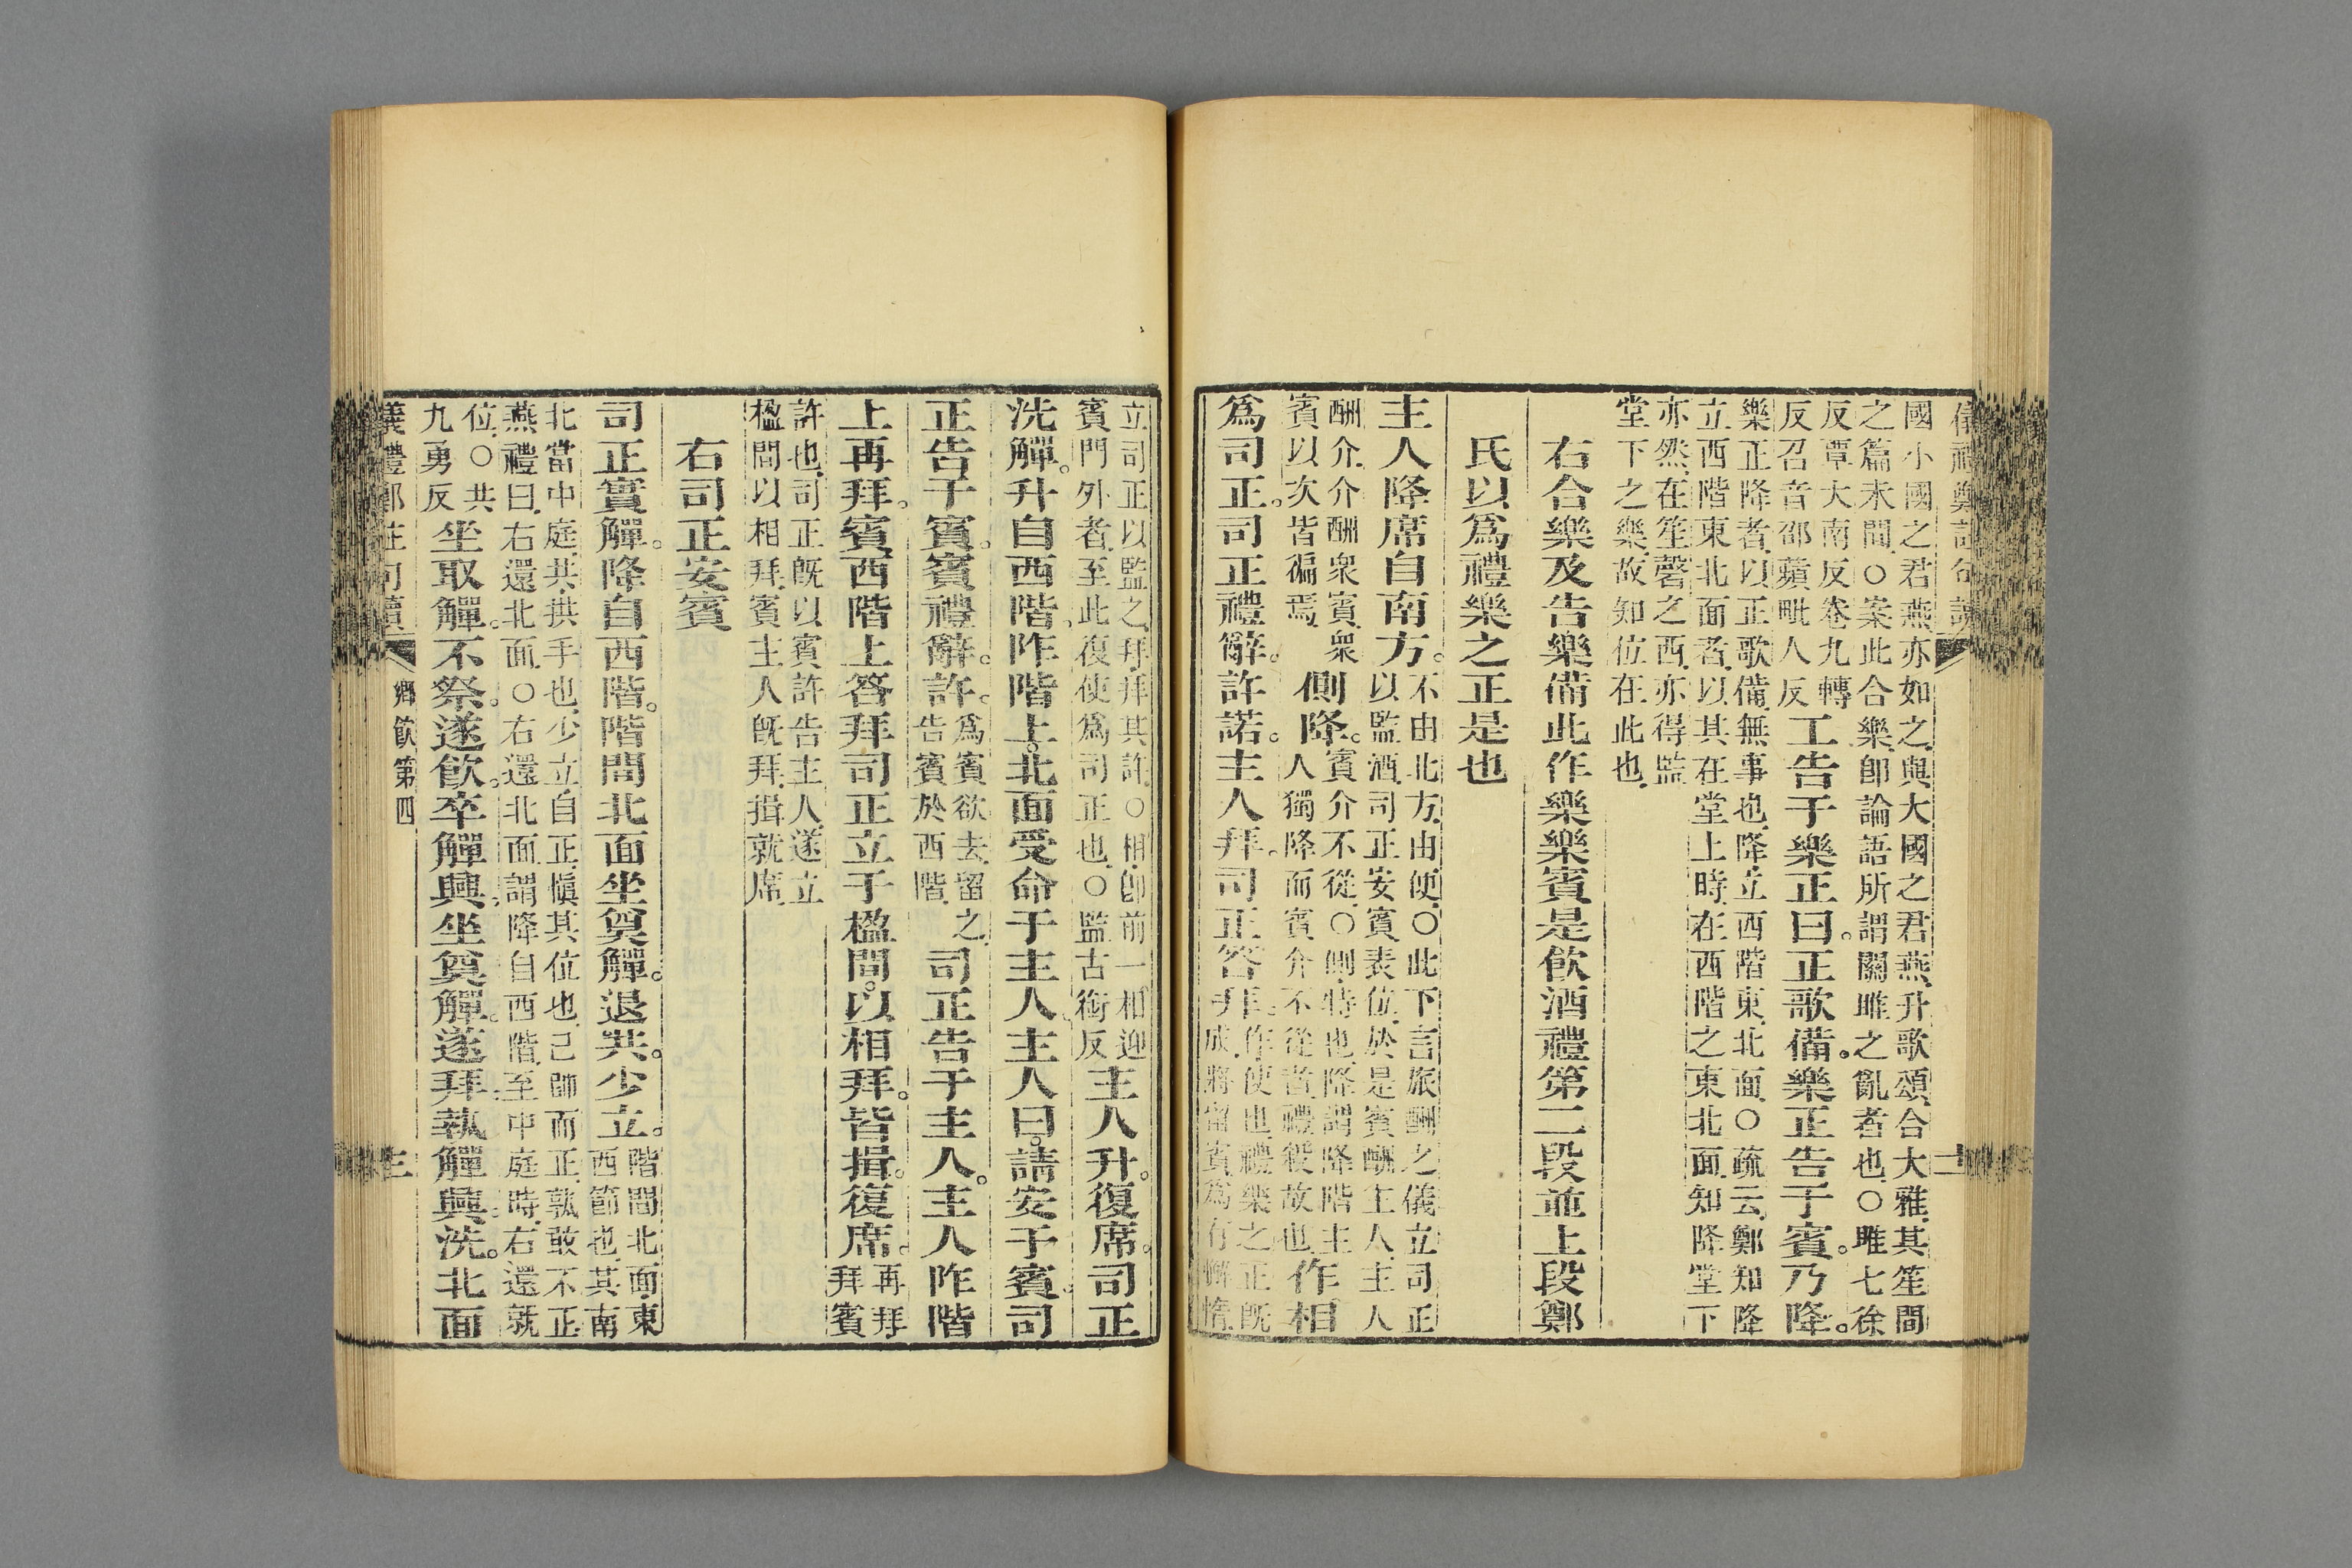 國小國之君燕亦如之與大國之君燕升歌頌合大雅其笙間
之篇未聞〇案此合樂卽論語所謂關雎之亂者也〇雎七徐
反覃大南反卷九轉
反召音邵蘋毗人反
工告于樂正曰。正歌備。樂正告于賓。乃降。
樂正降者以正歌備無事也降立西階東北面〇疏云鄭知降
立西階東北面者以其在堂上時在西階之東北面知降堂下
亦然在笙磬之西亦得監
堂下之樂故知位在此也
右合樂及告樂備此作樂樂賓是飮酒禮第二段並上段鄭
氏以爲禮樂之正是也
主人降席自南方。
不由北方由便〇此下言旅酬之儀立司正
以監酒司正安賓表位於是賓酬主人主人
酬介介酬衆賓衆
賓以次皆徧焉
側降。
賓介不從〇側特也降謂降階主
人獨降而賓介不從者禮殺故也
作相
爲司正。司正禮辭。許諾。主人拜。司正答拜。
作使也禮樂之正旣
成將留賓爲有懈惰
立司正以監之拜拜其許〇相卽前一相迎
賓門外者至此復使爲司正也〇監古銜反
主人升。復席。司正
洗觶。升自西階。阼階上。北面受命于主人。主人曰。請安于賓。司
正告于賓。賓禮辭。許。
爲賓欲去留之
告賓於西階
司正告于主人。主人阼階
上再拜。賓西階上答拜司正立于楹間。以相拜。皆揖。復席。
再拜
拜賓
許也司正旣以賓許告主人遂立
楹間以相拜賓主人旣拜揖就席
右司正安賓
司正實觶。降自西階。階間北面坐奠觶。退共。少立。
階間北面東
西節也其南
北當中庭共拱手也少立自正愼其位也己帥而正孰敢不正
燕禮曰右還北面〇右還北面謂降自西階至中庭時右還就
位〇共
九勇反
坐取觶。不祭。遂飮。卒觶興。坐奠觶。遂拜。執觶興。洗。北面
鄕飮第四